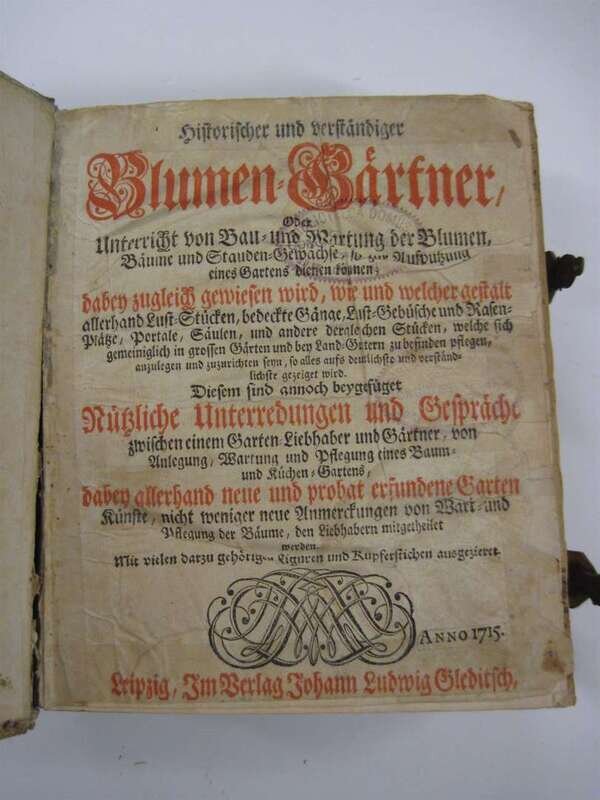 Historischer und verständiger
Blumen-Gärtner,
Oder
Unterricht von Bau- und Wartung der Blumen,
Bäume und Stauden-Gewächse, so zur Aufputzung
eines Gartens dienen können;
dabey zugleich gewiesen wird, wie und welcher gestalt
allerhand Lust-Stücken, bedeckte Gänge, Lust-Gebüsche und Rasen-
Plätze, Portale, Säulen, und andere dergleichen Stücken, welche sich
gemeiniglich in grossen Gärten und bey Land-Gütern zu befinden pflegen,
anzulegen und zuzurichten seyn, so alles aufs deutlichste und verständ-
lichste gezeiget wird.
Diesem sind annoch beygefüget
Nützliche Unterredungen und Gespräche
zwischen einem Garten Liebhaber und Gärtner, von
Anlegung, Wartung und Pflegung eines Baum-
und Küchen-Gartens,
dabey allerhand neue und probat erfundene Garten
Künste, nicht weniger neue Anmerckungen von Wart- und
Pflegung der Bäume, den Liebhabern mitgetheilet
werden.
Mit vielen darzu gehörigen Figuren und Kupferstichen ausgezieret.
ANNO 1715.
Leipzig, Im Verlag Johann Ludwig Gleditsch,